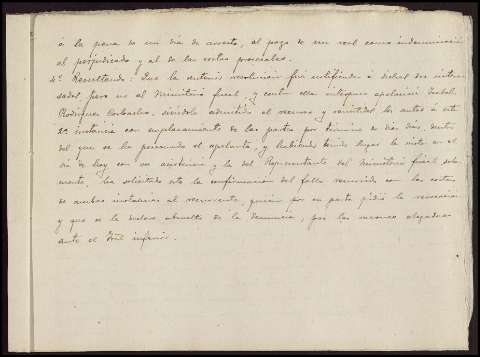 á la pena de un día de arresto, al pago de un real como indemnización
al perjudicado y al de las costas procesales.
4º Resultando: Que la anterior resolución fue notificada á dichos dos intere-
sados, pero no al Ministerio fiscal, y contra ella interpuso apelación Isabel
Rodriguez, siéndole admitido el recurso y remitidos los autos á esta
2ª instancia con emplazamiento de las partes por término de diez dias, dentro
del que se ha personado el apelante, y habiendo tenido lugar la vista en el
día de hoy con su asistencia y la del Representante del Ministerio fiscal sola-
mente, ha solicitado este la confirmación del fallo recurrido con las costas
de ambas instancias al recurrente, quien por su parte pidió la revocación
y que se le declare absuelto de la denuncia, por las razones alegadas
ante el Tral inferior.